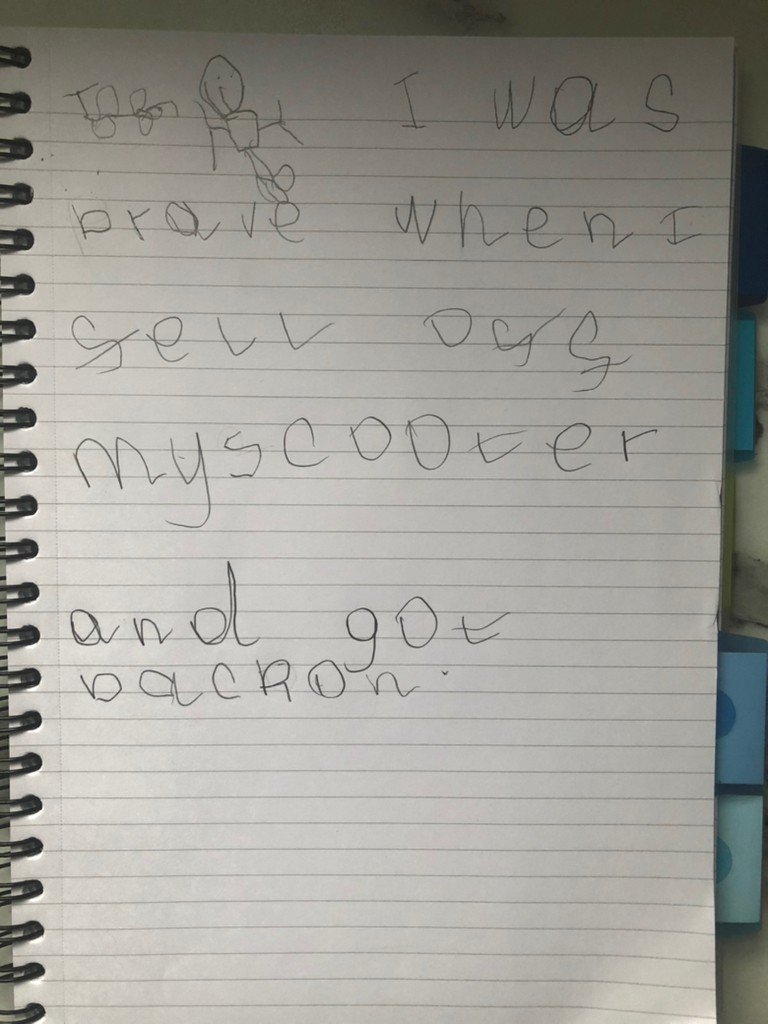 I was
brave when I
fell off
my scooter
and got
back on.